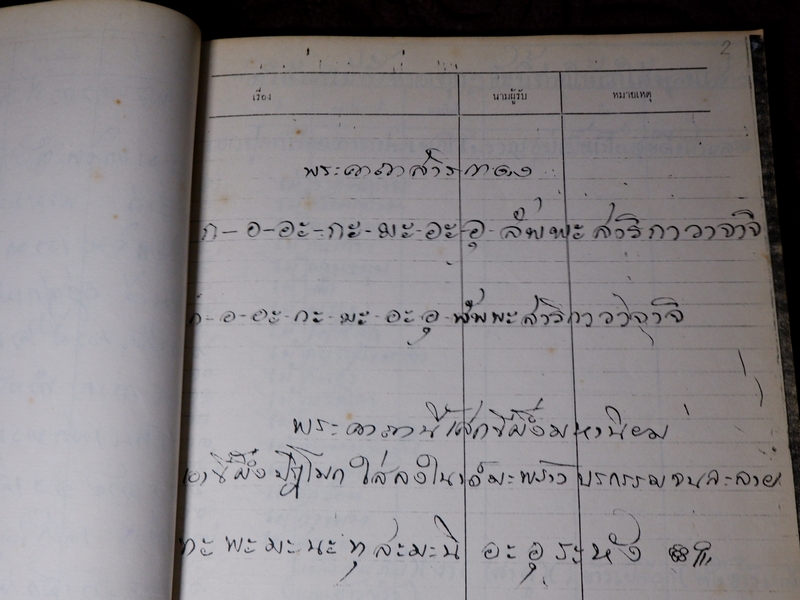 2
เรื่อง นามผู้รับ หมายเหตุ
พระคาถาสาริกาดง
ก-อ-อะ-กะ-มะ-อะ-อุ สัพพะสาริกาวาจาจิ
ก-อ-อะ-กะ-มะ-อะ-อุ สัพพะสาริกาวาจาจิ
พระคาถานี้เสกขี้ผึ้งมหานิยม
เอาขี้ผึ้ง ใส่ลงใน มะพร้าว บรกรรมจนละลาย
ทะ พะ มะ นะ ทุ สะ มะ นิ อะ อุ ระ หัง